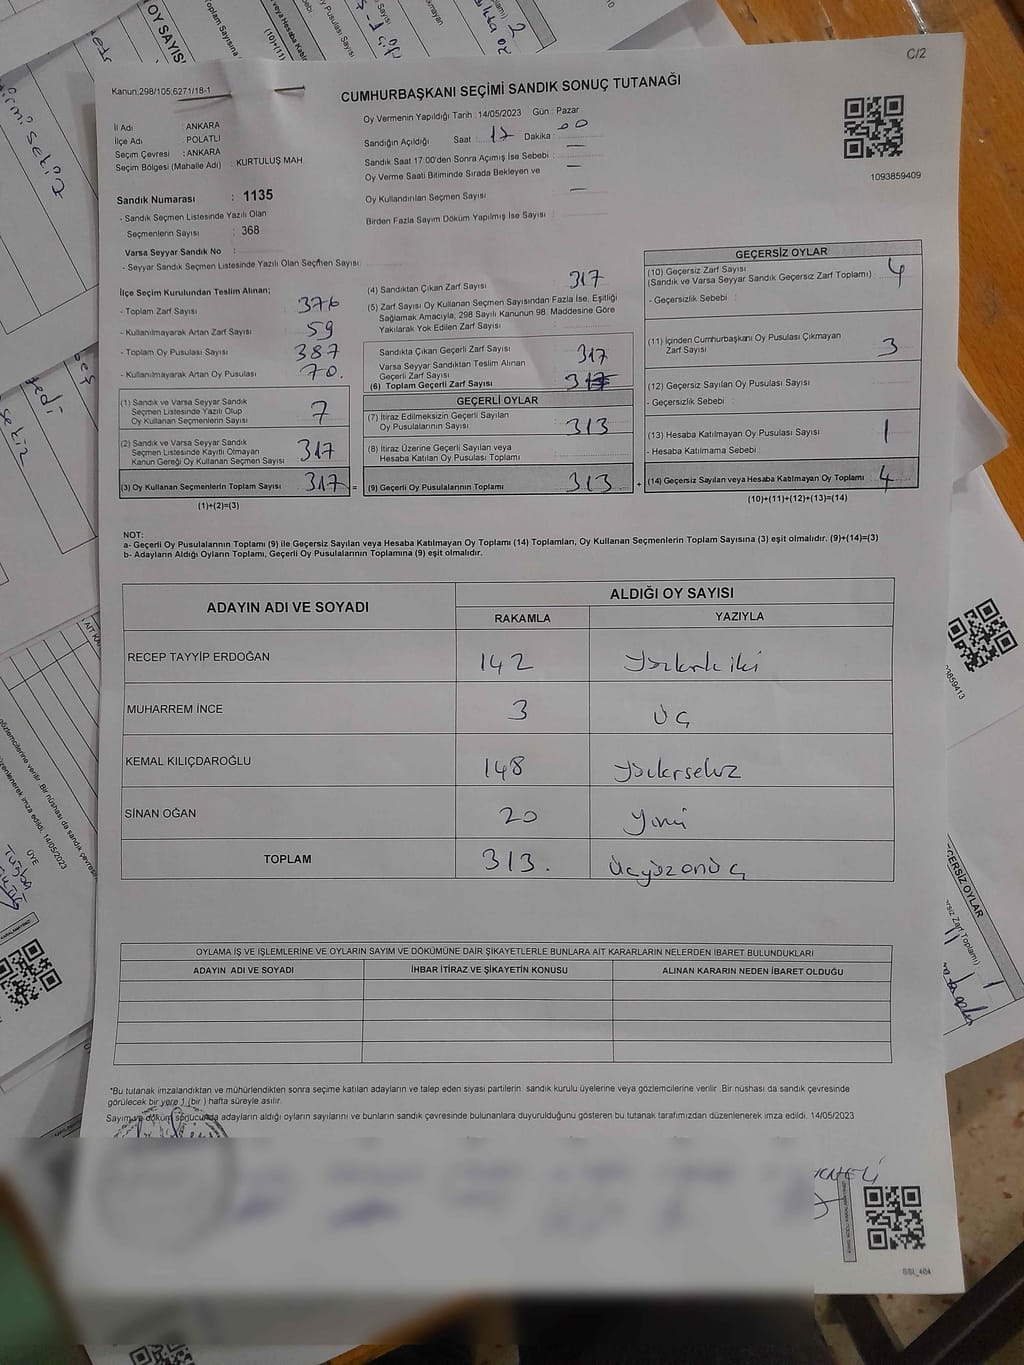 C/2
Kanun:298/105;6271/18-1
CUMHURBAŞKANI SEÇİMİ SANDIK SONUÇ TUTANAĞI
İl Adı : ANKARA
İlçe Adı : POLATLI
Seçim Çevresi : ANKARA
Seçim Bölgesi (Mahalle Adı) : KURTULUŞ MAH.
Sandık Numarası : 1135
- Sandık Seçmen Listesinde Yazılı Olan
Seçmenlerin Sayısı : 368
Varsa Seyyar Sandık No :
- Seyyar Sandık Seçmen Listesinde Yazılı Olan Seçmen Sayısı:
Oy Vermenin Yapıldığı Tarih : 14/05/2023 Gün : Pazar
Sandığın Açıldığı Saat : 17 Dakika : 00
Sandık Saat 17:00'den Sonra Açımış İse Sebebi : —
Oy Verme Saati Bitiminde Sırada Bekleyen ve —
Oy Kullandırılan Seçmen Sayısı —
Birden Fazla Sayım Döküm Yapılmış İse Sayısı :
1093859409
İlçe Seçim Kurulundan Teslim Alınan;
- Toplam Zarf Sayısı : 376
- Kullanılmayarak Artan Zarf Sayısı : 59
- Toplam Oy Pusulası Sayısı : 387
- Kullanılmayarak Artan Oy Pusulası : 70.
(1) Sandık ve Varsa Seyyar Sandık
Seçmen Listesinde Yazılı Olup
Oy Kullanan Seçmenlerin Sayısı : 7
(2) Sandık ve Varsa Seyyar Sandık
Seçmen Listesinde Kayıtlı Olmayan
Kanun Gereği Oy Kullanan Seçmen Sayısı : 317
(3) Oy Kullanan Seçmenlerin Toplam Sayısı : 317 =
(1)+(2)=(3)
(4) Sandıktan Çıkan Zarf Sayısı : 317
(5) Zarf Sayısı Oy Kullanan Seçmen Sayısından Fazla İse, Eşitliği
Sağlamak Amacıyla, 298 Sayılı Kanunun 98. Maddesine Göre
Yakılarak Yok Edilen Zarf Sayısı :
Sandıkta Çıkan Geçerli Zarf Sayısı : 317
Varsa Seyyar Sandıktan Teslim Alınan
Geçerli Zarf Sayısı :
(6) Toplam Geçerli Zarf Sayısı : 317
GEÇERLİ OYLAR
(7) İtiraz Edilmeksizin Geçerli Sayılan
Oy Pusulalarının Sayısı : 313
(8) İtiraz Üzerine Geçerli Sayılan veya
Hesaba Katılan Oy Pusulası Toplamı :
(9) Geçerli Oy Pusulalarının Toplamı : 313 +
GEÇERSİZ OYLAR
(10) Geçersiz Zarf Sayısı
(Sandık ve Varsa Seyyar Sandık Geçersiz Zarf Toplamı) : 4
- Geçersizlik Sebebi :
(11) İçinden Cumhurbaşkanı Oy Pusulası Çıkmayan
Zarf Sayısı : 3
(12) Geçersiz Sayılan Oy Pusulası Sayısı :
- Geçersizlik Sebebi :
(13) Hesaba Katılmayan Oy Pusulası Sayısı : 1
- Hesaba Katılmama Sebebi :
(14) Geçersiz Sayılan veya Hesaba Katılmayan Oy Toplamı : 4
(10)+(11)+(12)+(13)=(14)
NOT:
a- Geçerli Oy Pusulalarının Toplamı (9) ile Geçersiz Sayılan veya Hesaba Katılmayan Oy Toplamı (14) Toplamları, Oy Kullanan Seçmenlerin Toplam Sayısına (3) eşit olmalıdır. (9)+(14)=(3)
b- Adayların Aldığı Oyların Toplamı, Geçerli Oy Pusulalarının Toplamına (9) eşit olmalıdır.
ADAYIN ADI VE SOYADI ALDIĞI OY SAYISI
RAKAMLA YAZIYLA
RECEP TAYYİP ERDOĞAN 142
MUHARREM İNCE 3 üç
KEMAL KILIÇDAROĞLU 148
SİNAN OĞAN 20 yirmi
TOPLAM 313. üçyüzonüç
OYLAMA İŞ VE İŞLEMLERİNE VE OYLARIN SAYIM VE DÖKÜMÜNE DAİR ŞİKAYETLERLE BUNLARA AİT KARARLARIN NELERDEN İBARET BULUNDUKLARI
ADAYIN ADI VE SOYADI İHBAR İTİRAZ VE ŞİKAYETİN KONUSU ALINAN KARARIN NEDEN İBARET OLDUĞU
*Bu tutanak imzalandıktan ve mühürlendikten sonra seçime katılan adayların ve talep eden siyasi partilerin sandık kurulu üyelerine veya gözlemcilerine verilir. Bir nüshası da sandık çevresinde
görülecek bir yere 1 (bir) hafta süreyle asılır.
Sayım ve döküm sonucunda adayların aldığı oyların sayılarını ve bunların sandık çevresinde bulunanlara duyurulduğunu gösteren bu tutanak tarafımızdan düzenlenerek imza edildi. 14/05/2023